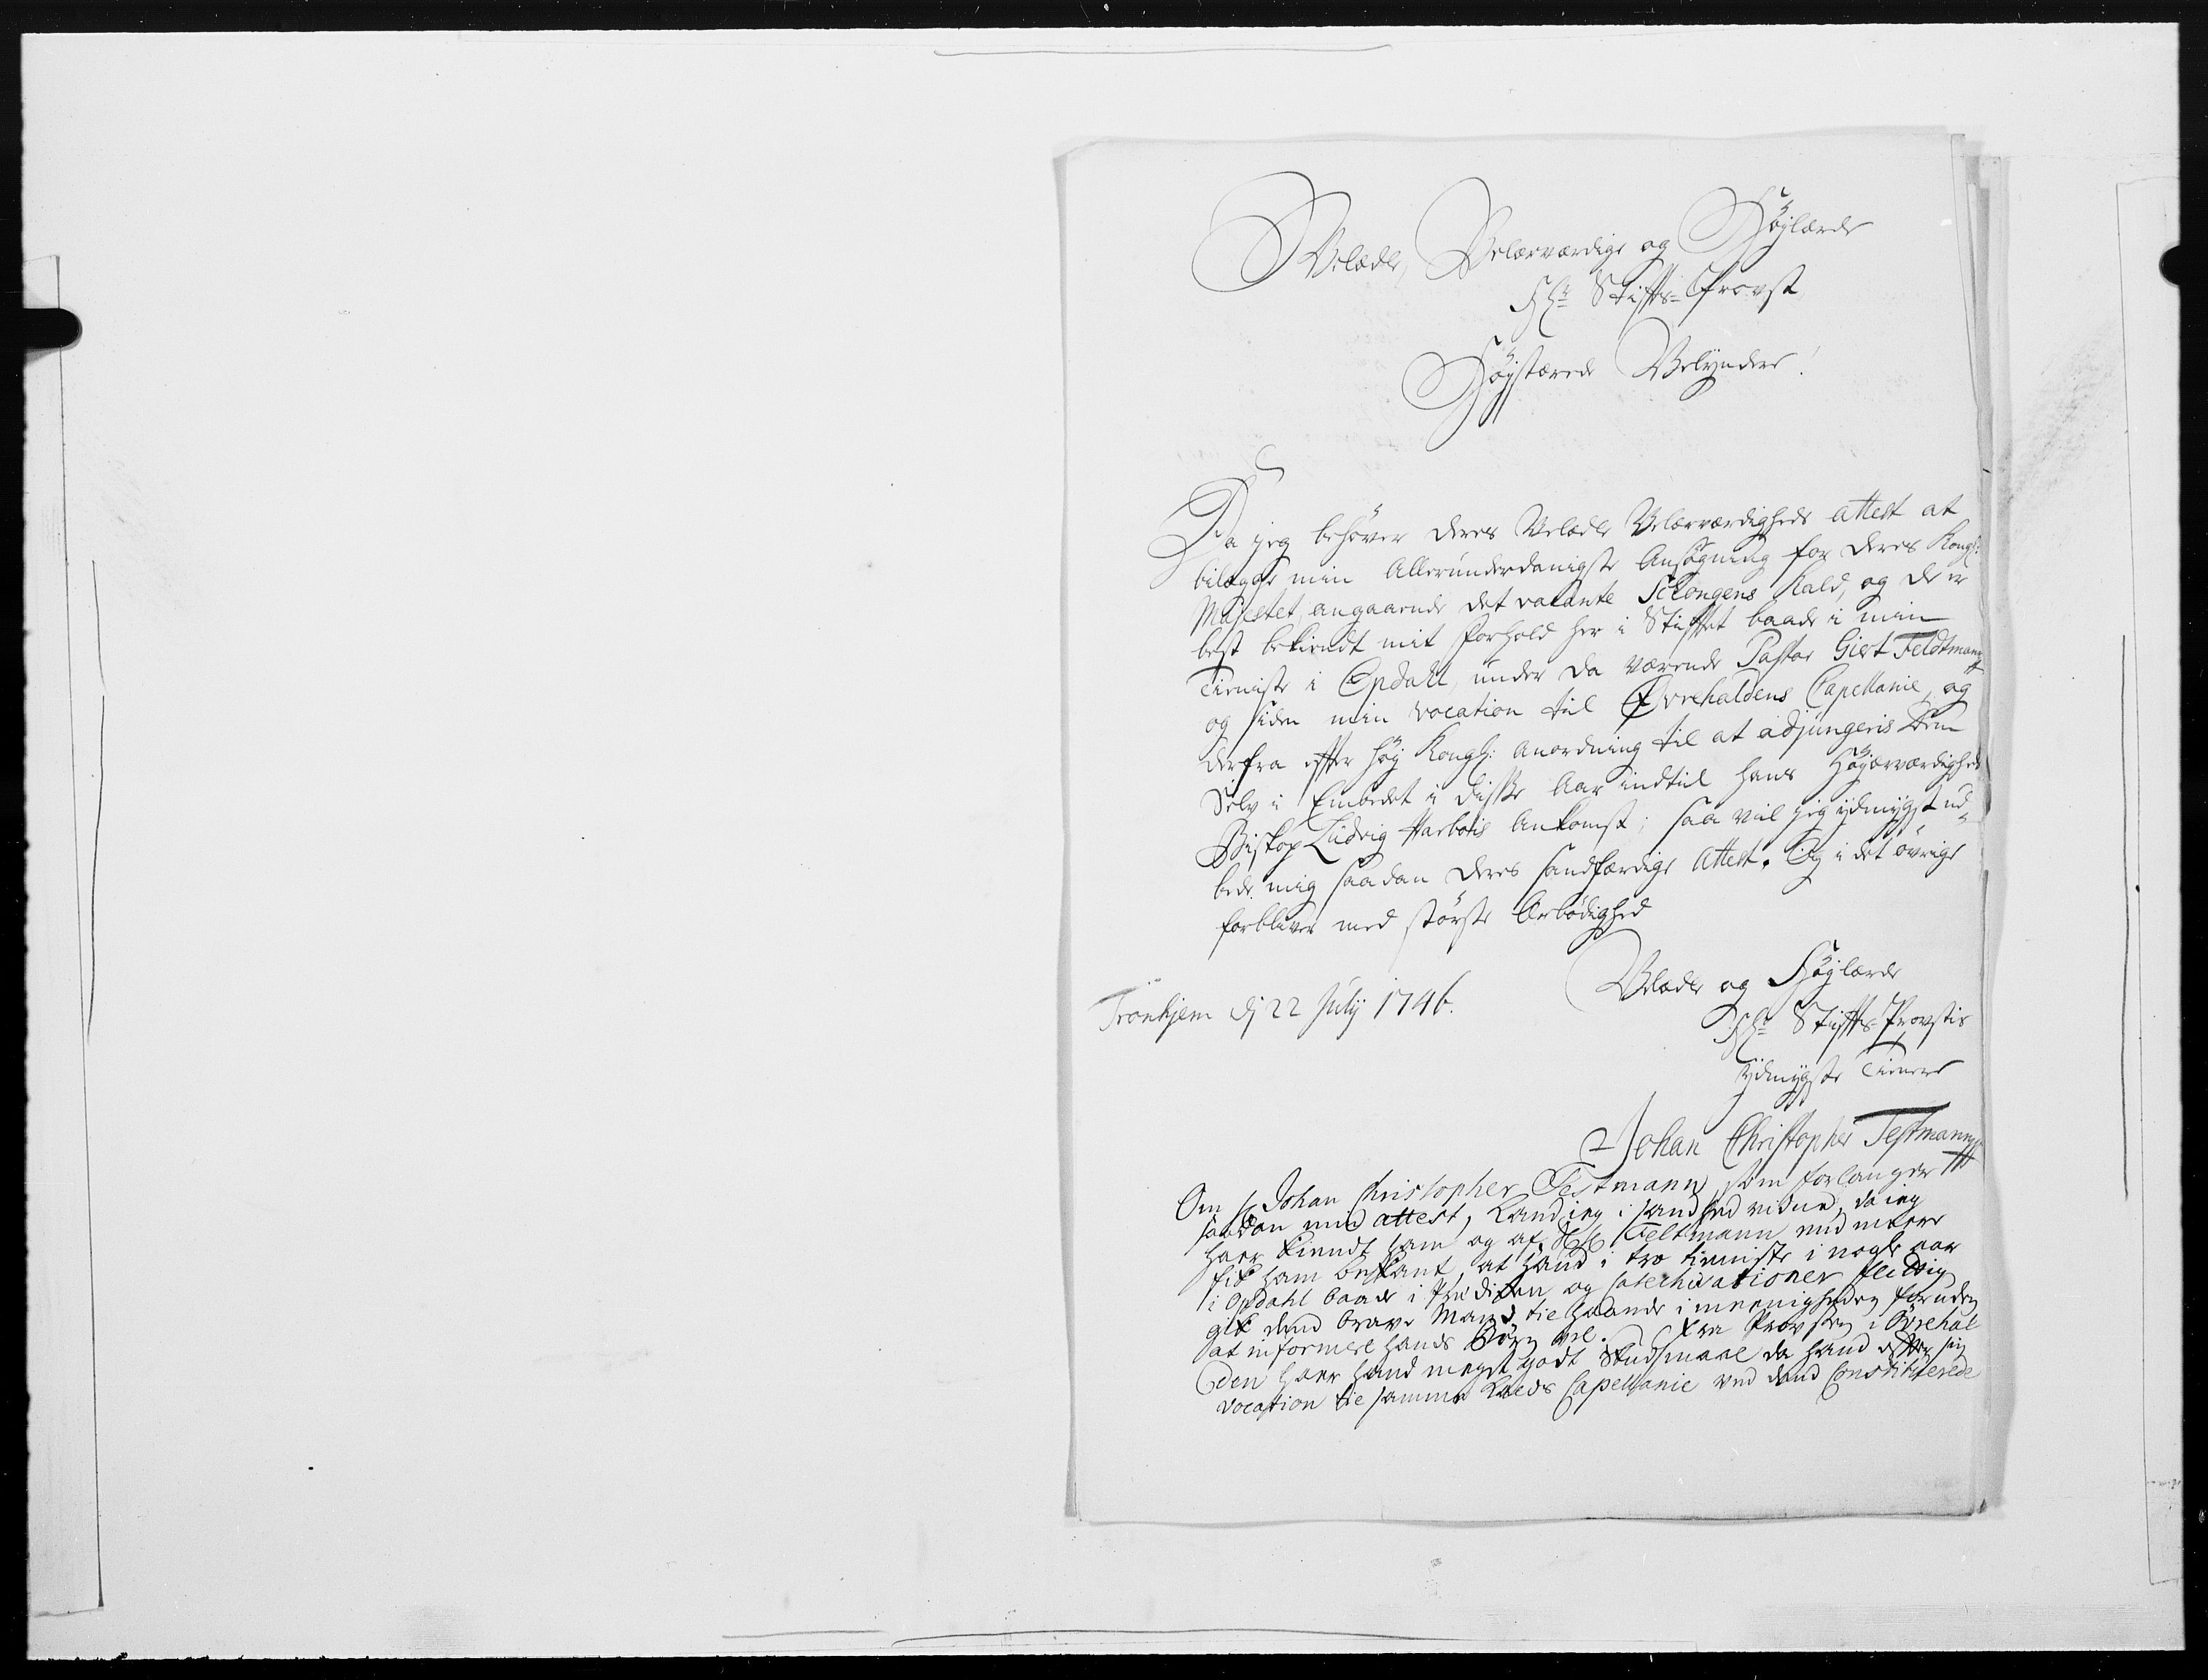 Velædle, Velærværdige og Höylærde
Hr: Stifts-Provst
Höystærede Velynder!
Da jeg behöver Deres Velædle Velærværdigheds attest at
bilegge min Allerunderdanigste Ansögning for Deres Kongl:
Majestet, angaaende det vacante Schongens Kald, og De er
best bekiendt mit Forhold her i Stiftet baade i min
Tieniste i Opdahl, under da værende Pastor Giert Feldtmann
og siden min vocation til Ovrehaldens Capellanie, og
derfra efter høy Kongl: Anordning til at adjungeris Dem
Selv i Embedet i disse Aar indtil hans Höyærværdighed
Biskop Ludvig Harboes Ankomst; saa vil jeg ydmygst ud-
bede mig saadan Deres sandfærdige Attest. Og i det övrige
forbliver med störste Ærbödighed
Velædle og Höylærde
Tronhjem dj 22 July 1746.
Hr: Stifts-Provstis
ydmygste Tienere
Johan Christopher Testmann
Om Hr Johan Christopher Testmann, som forlanger
saadan min attest, kand jeg i sandhed vidne, da jeg
haver kiendt ham og af Sl Hr Feltmann end meere
fik ham bekant, at hand i tro tieniste i nogle aar
i Opdahl baade i Prediken og Catechisationer flittig
gik dend brave Mand tie haande i meenigheden foruden
at informere hands Börn vel. Fra Provsten i Övrehal
den haver hand meget godt Skudsmaal da hand efter sin
vocation tie samme Kalds Capellanie ved dend Constituerede